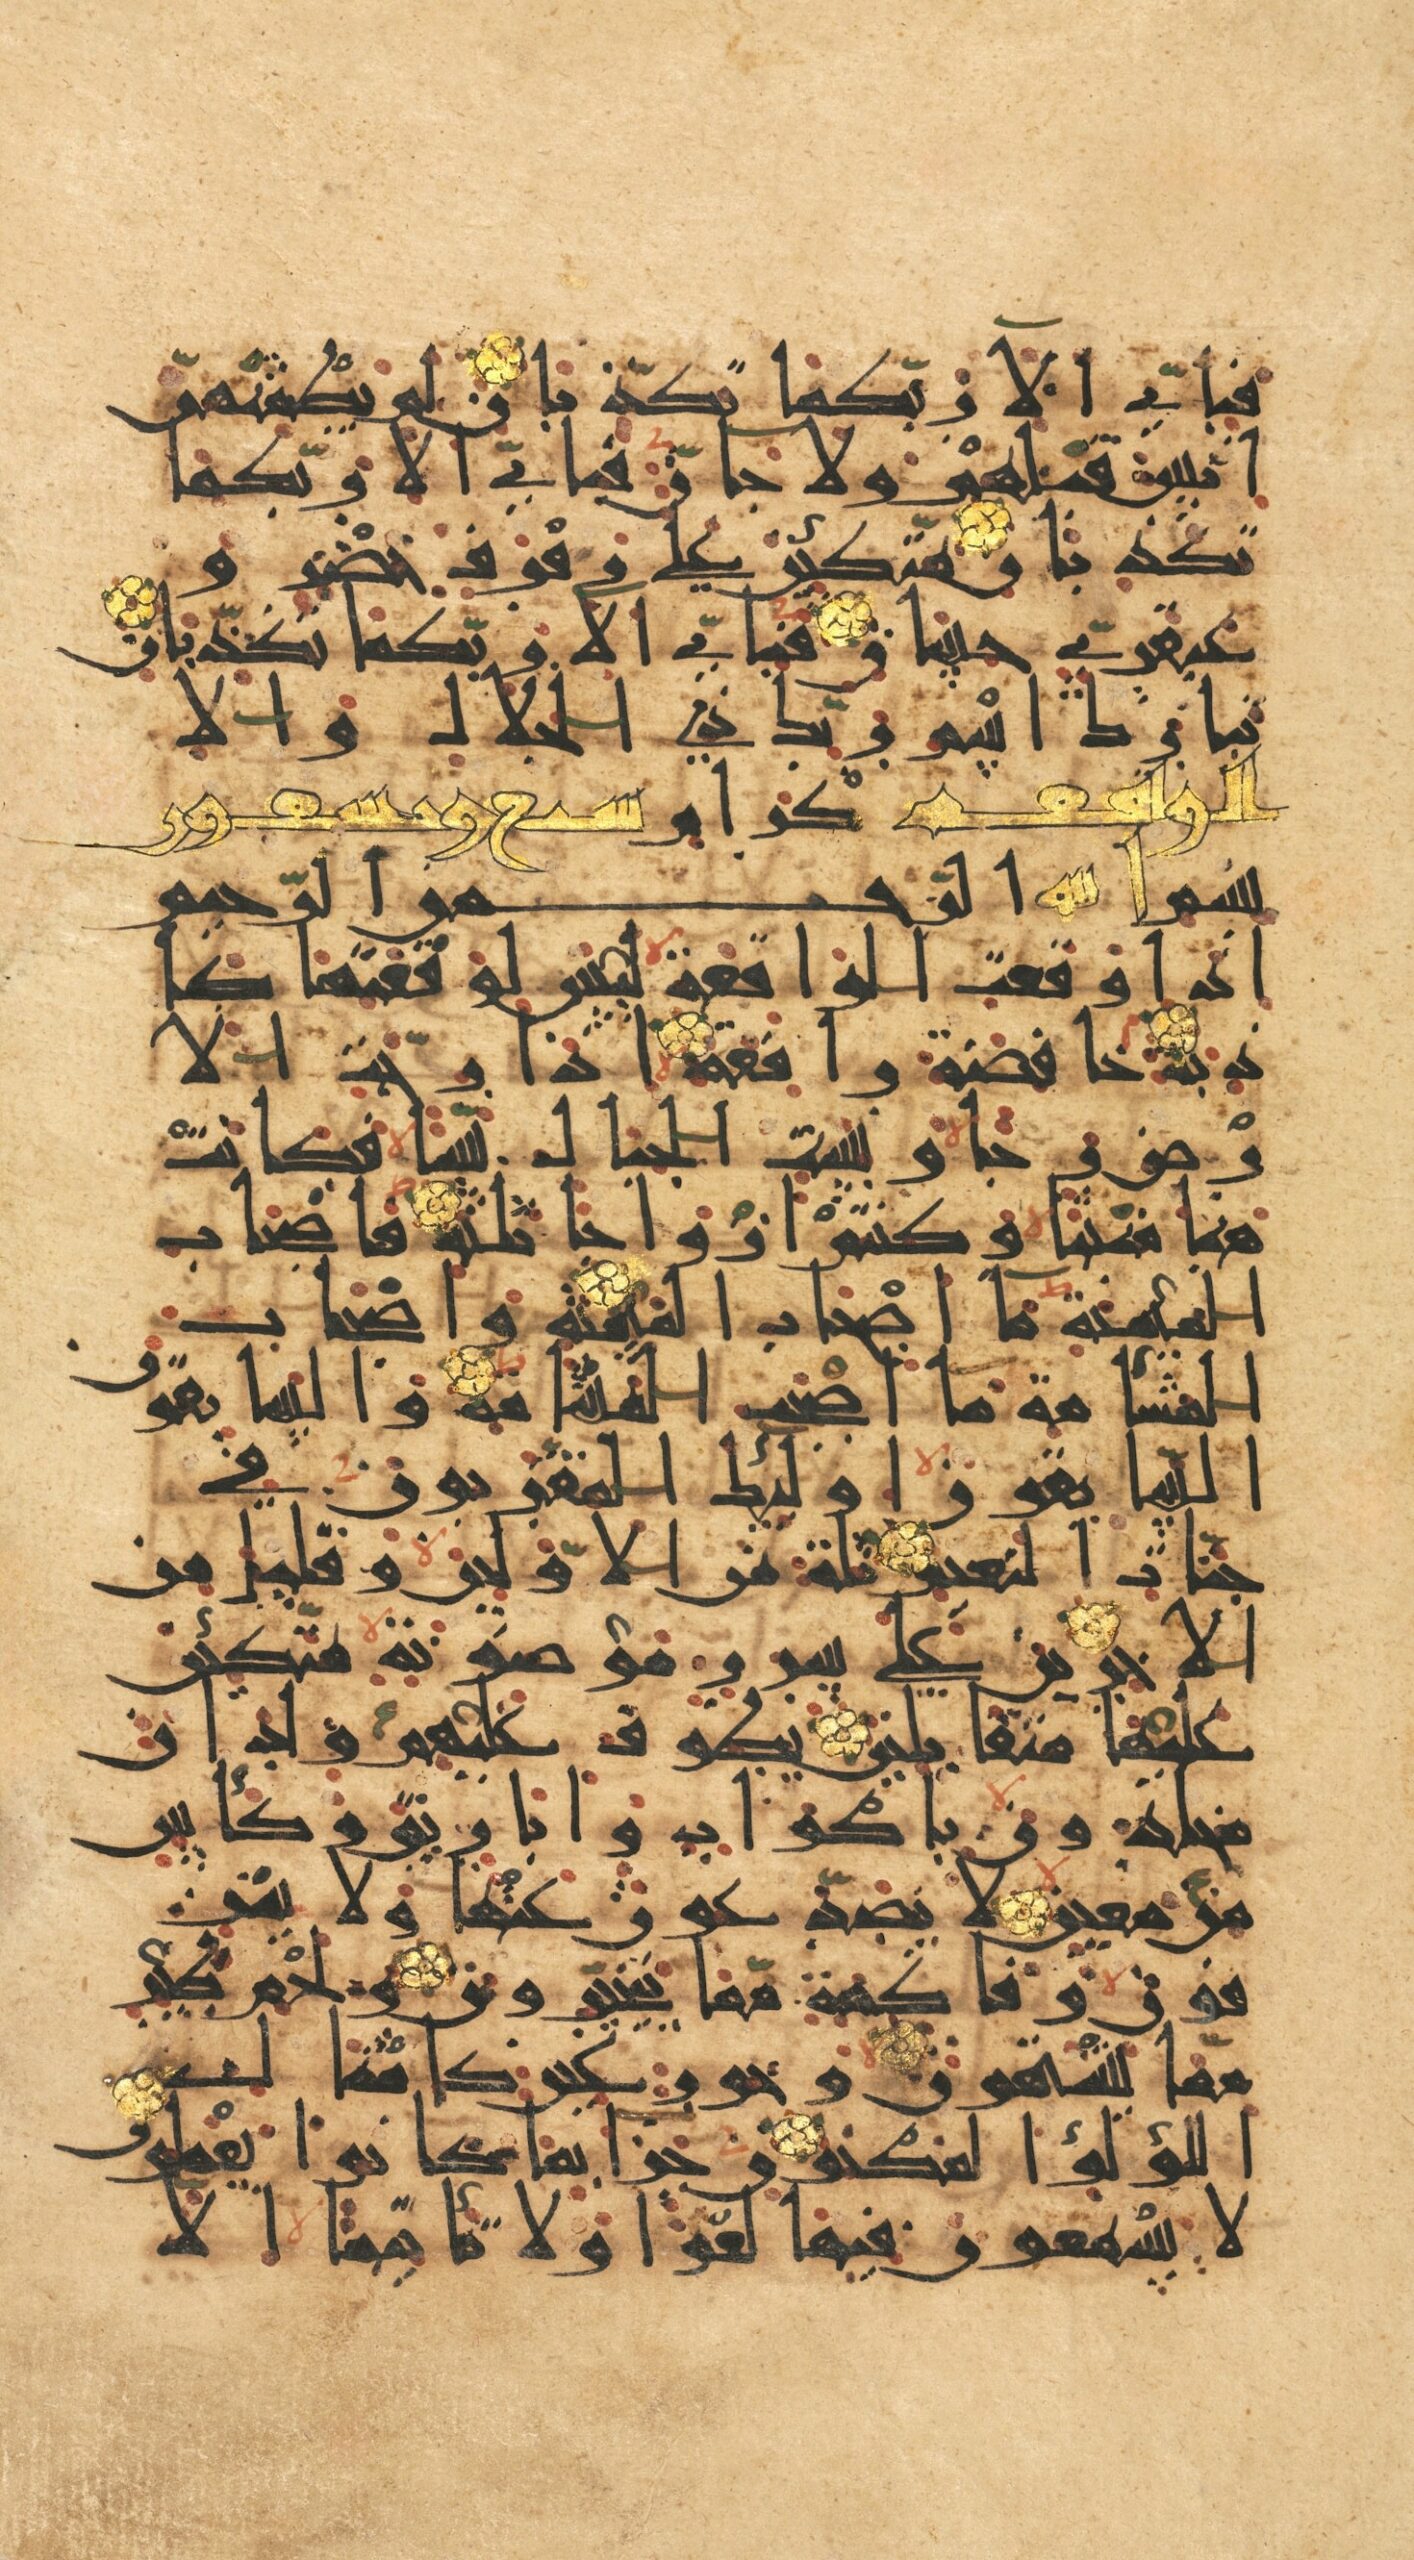 فباي الا ربكما تكذبان لم يطمثهن
انس قبلهم ولا جان فباي الا ربكما
تكذبان متكئين على رفرف خضر و
عبقري حسان فباي الا ربكما تكذبان
تبارك اسم ربك ذي الجلال والا
الواقعه كرام سبع وتسعون
بسم الله الرحمن الرحيم
اذا وقعت الواقعة ليس لوقعتها كا
ذبة خافضة رافعة اذا رجت الا
رض رجا وبست الجبال بسا فكانت
هبا منبثا وكنتم ازواجا ثلثة فاصحاب
الميمنة ما اصحاب الميمنة واصحاب
المشأمة ما اصحب المشامة والسابقون
السابقون اولئك المقربون في
جنات النعيم ثلة من الاولين وقليل من
الاخرين على سرر موضونة متكئين
عليها متقابلين يطوف عليهم ولدان
مخلدون باكواب واباريق وكأس
من معين لا يصدعون عنها ولا ينز
فون وفاكهة مما يتخيرون ولحم طير
مما يشتهون وحور عين كامثال
اللؤلؤا لمكنون جزا بما كانوا يعملون
لا يسمعون فيها لغوا ولا تأثيما الا